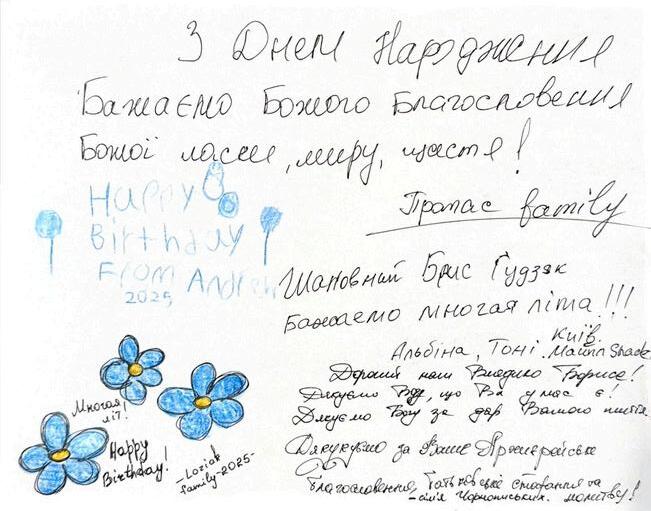 З Днем Народження
Бажаємо Божого Благословення
Божої ласки, миру, щастя!
Пропас family
Happy
Birthday
From Andrew
2025
Шановний Брис Гудзяк
Бажаємо многая літа!!!
Київ.
Альбіна, Тоні. Майпл Shade
Дорогий наш Владико Борисе!
Дякуємо Богу, що Ви у нас є!
Дякуємо Богу за дар Вашого життя.
Дякукємо за Ваше Архиєрейське
Благословення, Батьківське старання та
молитву!
Многая
літ!
Happy
Birthday!
-Loziak
family-2025-